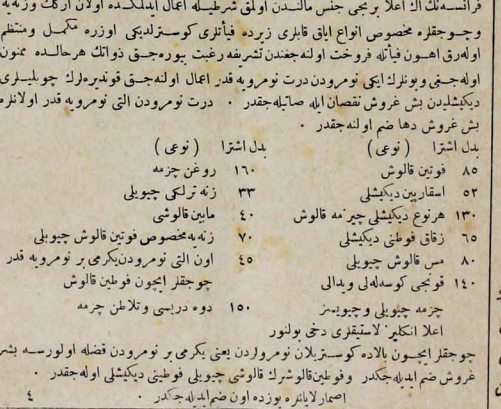 فرانسه‌نك اك اعلا برنجی جنس مالندن اولمق شرطیله اعمال ایدلمكده اولان اركك وزنانه
وچوجقلره مخصوص انواع ایاق قابلری زیرده فیأتلری كوسترلدیكی اوزره مكمل ومنتظم
اوله‌رق اهون فیأتله فروخت اولنه‌جغندن تشریفه رغبت بیوره‌جق ذواتك هرحالده ممنون
اوله‌جغی وبونلرك ایكی نومرودن درت نومرویه قدر اعمال اولنه‌جق قوندیره‌لرك چیویلیلری
دیكیشلیدن بش غروش نقصان ایله صاتیله‌جقدر . درت نومرودن التی نومرویه قدر اولانلره
بش غروش دها ضم اولنه‌جقدر .
بدل اشترا ( نوعی ) بدل اشترا ( نوعی )
٨٥ فوتین قالوش ١٦٠ روغن چزمه
٥٢ اسقارپین دیكیشلی ٣٣ زنه ترلكی چیویلی
١٣٠ هرنوع دیكیشلی چیزمه قالوش ٤٠ مابین قالوشی
٦٥ زقاق فوطنی دیكیشلی ٧٠ زنه‌یه مخصوص فوتین قالوش چیویلی
٨٠ مس قالوش چیویلی ٤٥ اون التی نومرودن یكرمی بر نومرویه قدر
١٤٠ قونجی كوسه‌له‌لی ویدالی چوجقلر ایچون فوطین قالوش
چزمه چیویلی وچیویسز ١٥٠ دوه دریسی وتلاطن چزمه
اعلا انكلیز لاستیقلری دخی بولنور
چوجقلر ایچون بالاده كوستریلان نومرولردن یعنی یكرمی بر نومرودن فضله اولورسه بشر
غروش ضم ایدیله‌جكدر وفوطین قالوشلرك قالوشی چیویلی فوطینی دیكیشلی اوله‌جقدر .
اصمارلایانلره یوزده اون ضم ایدیله‌جكدر .
٤